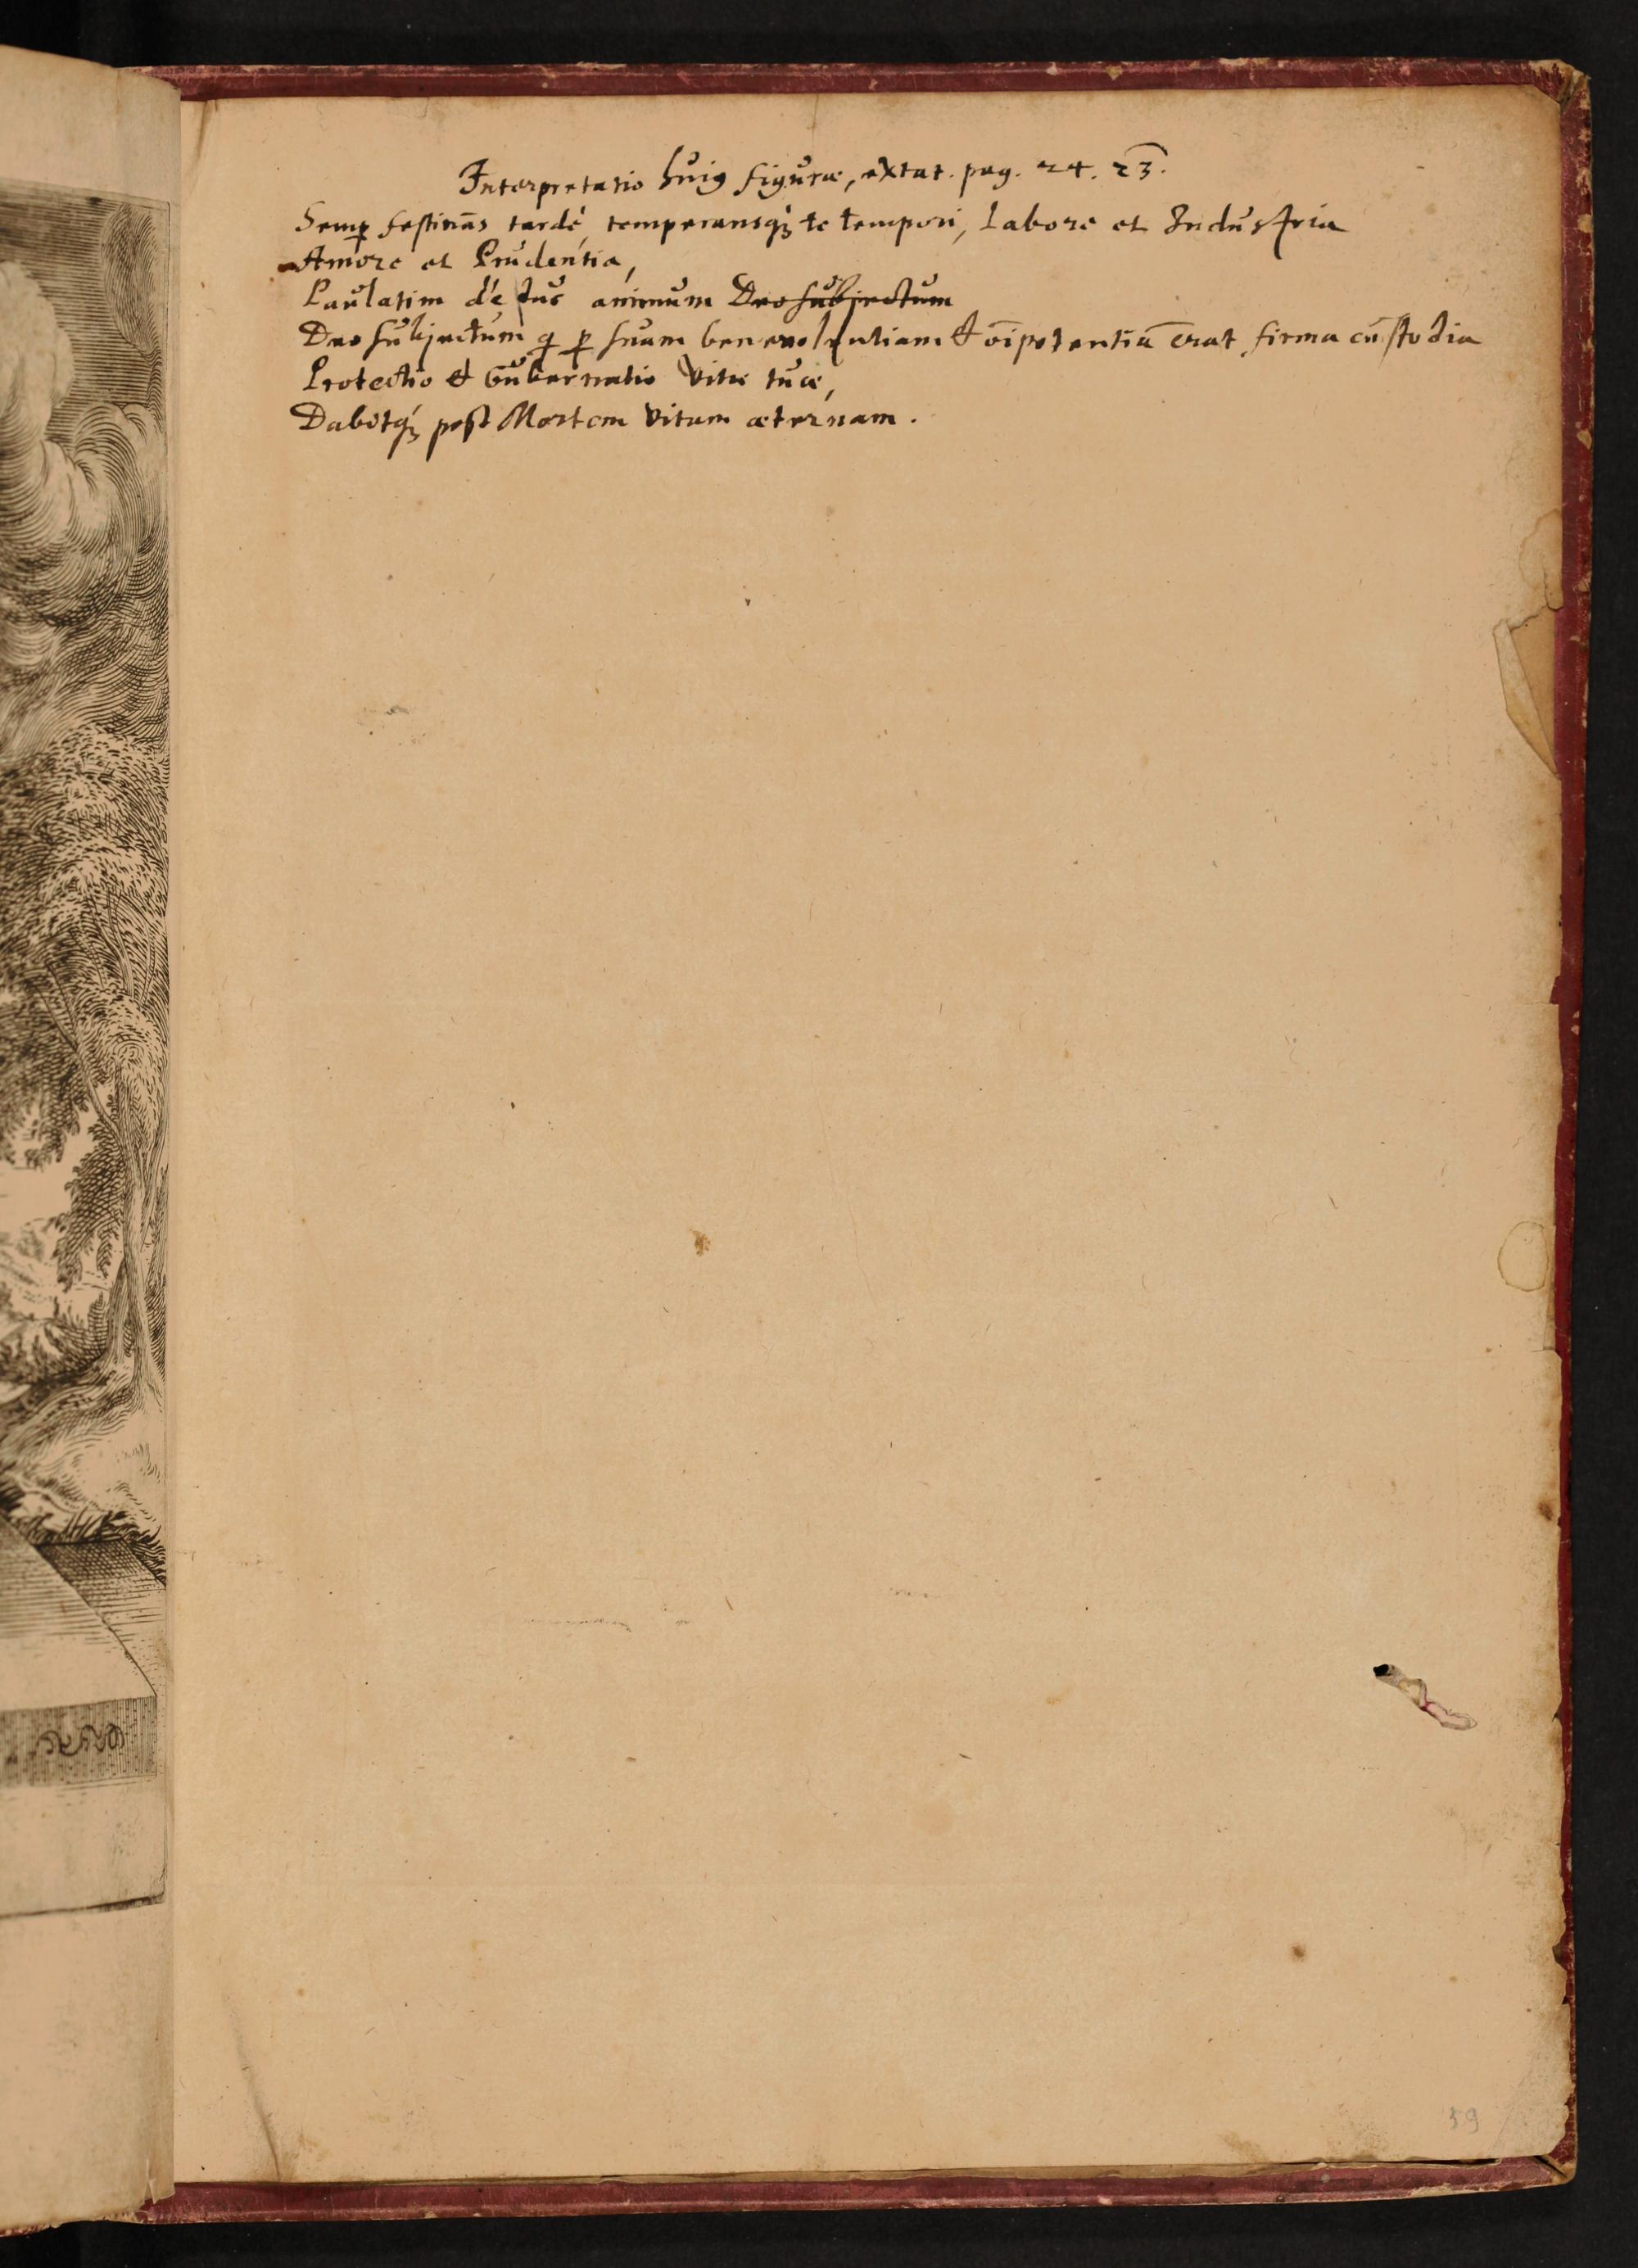 Interpretatio huiꝰ figuræ, extat. pag. 24. 23.
Semꝑ festinãs tardé, temperansqꝫ te tempori, Labore et Industria
Amore et Prudentia,
Paulatim animum Deo subjectum
Deo subjectum q ꝑ suam benevolentiam & oı̃potentiã erat firma custodia
Protectio & Gubernatio Vitæ tuæ,
Dabitqꝫ post Mortem Vitam æternam.
59